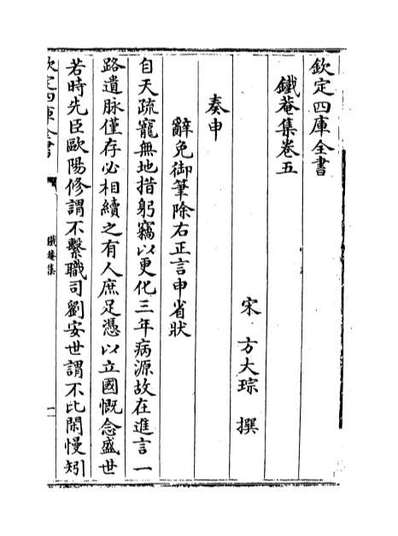 欽定四庫全書
鐵菴集卷五
宋 方大琮 撰
奏申
辭免御筆除右正言申省狀
自天疏寵無地措躬竊以更化三年病源故在進言一
路遺脉僅存必相續之有人庶足憑以立國慨念盛世
若時先臣歐陽修謂不繫職司劉安世謂不比閑慢矧
欽定四庫全書
鐵菴集
一